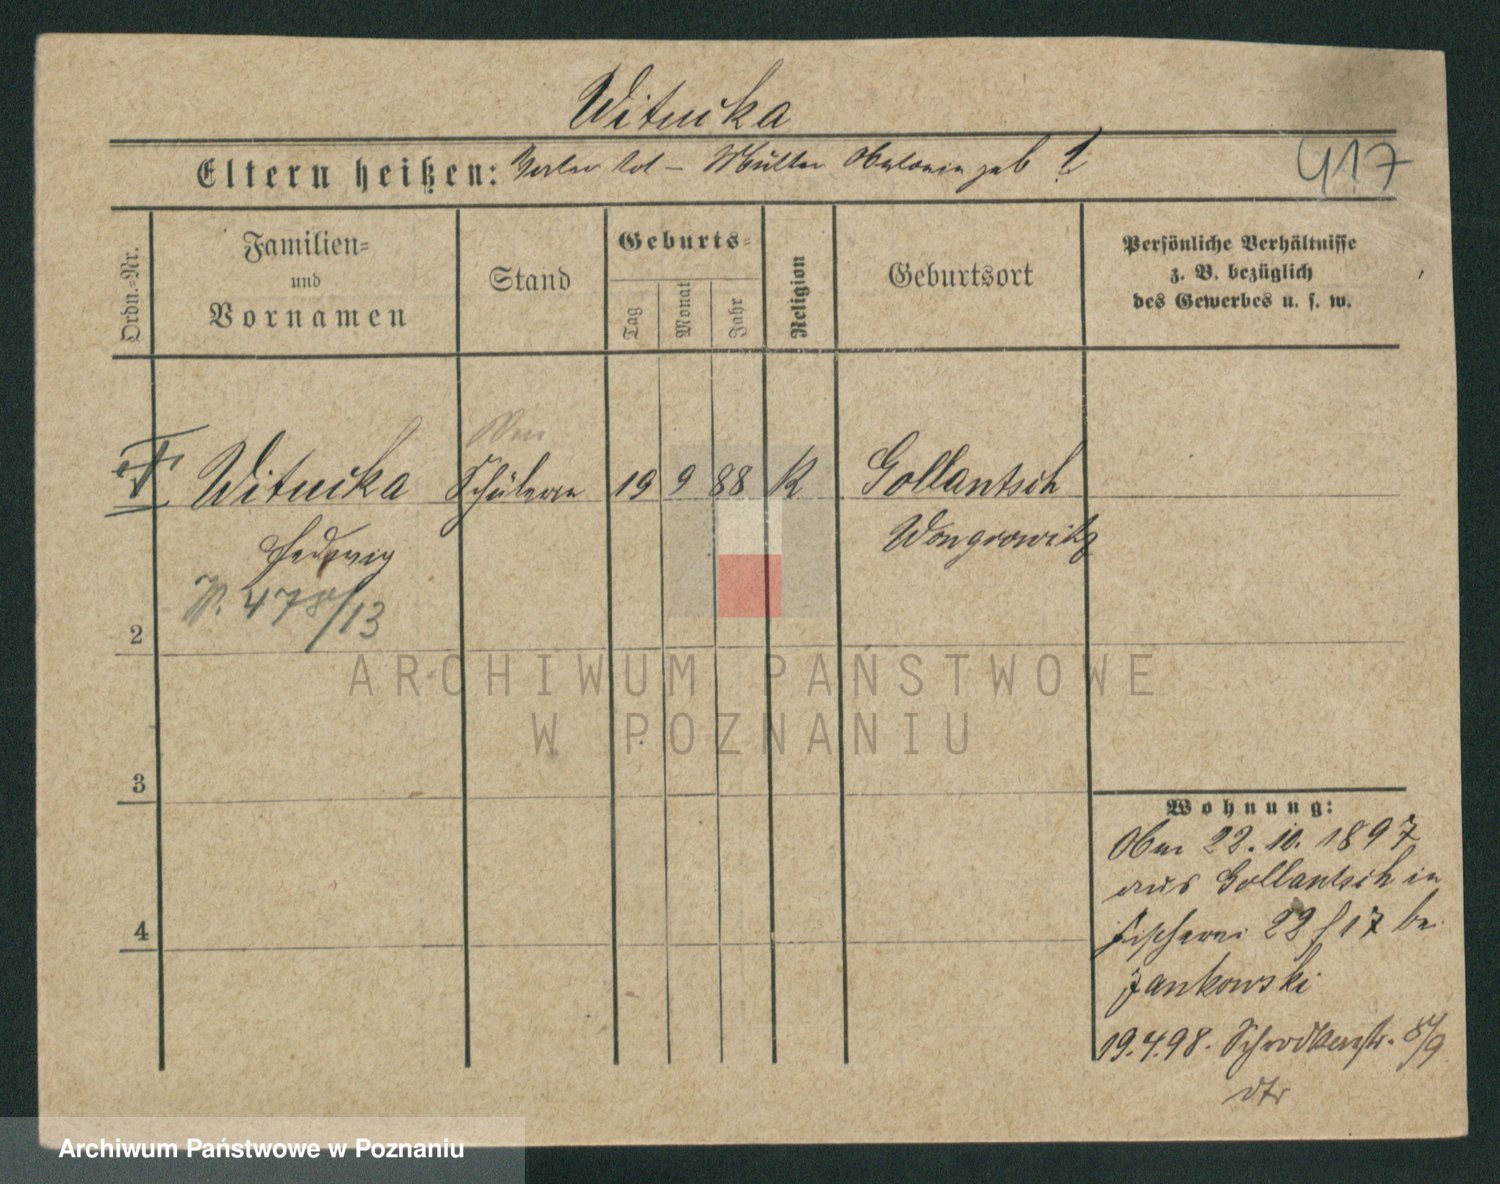 Witucka
Eltern heißen: Vater tot – Mutter geb ?
417
Ordn.-Nr.
Familien-
und
Vornamen
Stand
Geburts-
Tag
Monat
Jahr
Religion
Geburtsort
Persönliche Verhältnisse
z. B. bezüglich
des Gewerbes u. s. w.
Witucka
Schülerin
19 9 88 K
Gollantsch
Hedwig
Wongrowitz
478/13
2
ARCHIWUM PAŃSTWOWE
W POZNANIU
3
Wohnung:
22. 10. 1897
aus Gollantsch in
Fischerei 22 f 17 bei
4
Jankowski
19.4.98. 8/9
dtr
Archiwum Państwowe w Poznaniu